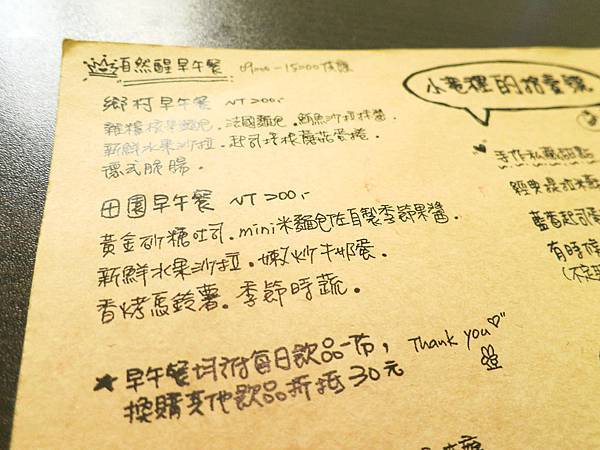 自然醒早午餐 09:00-15:00供應
鄉村早午餐 NT 200.-
雜糧核果麵包.法國麵包.鮪魚沙拉抹醬.
新鮮水果沙拉.起司培根蘑菇蛋捲.
德式脆腸.
田園早午餐 NT 200.-
黃金砂糖吐司.mini米麵包佐自製季節果醬.
新鮮水果沙拉.嫩炒牛奶蛋.
香烤馬鈴薯.季節時蔬.
★早午餐均附每日飲品一份,
換購其他飲品折抵30元
Thank you♡"
小巷裡的
手作私藏甜點
經典提拉米
藍莓起司蛋
有時候